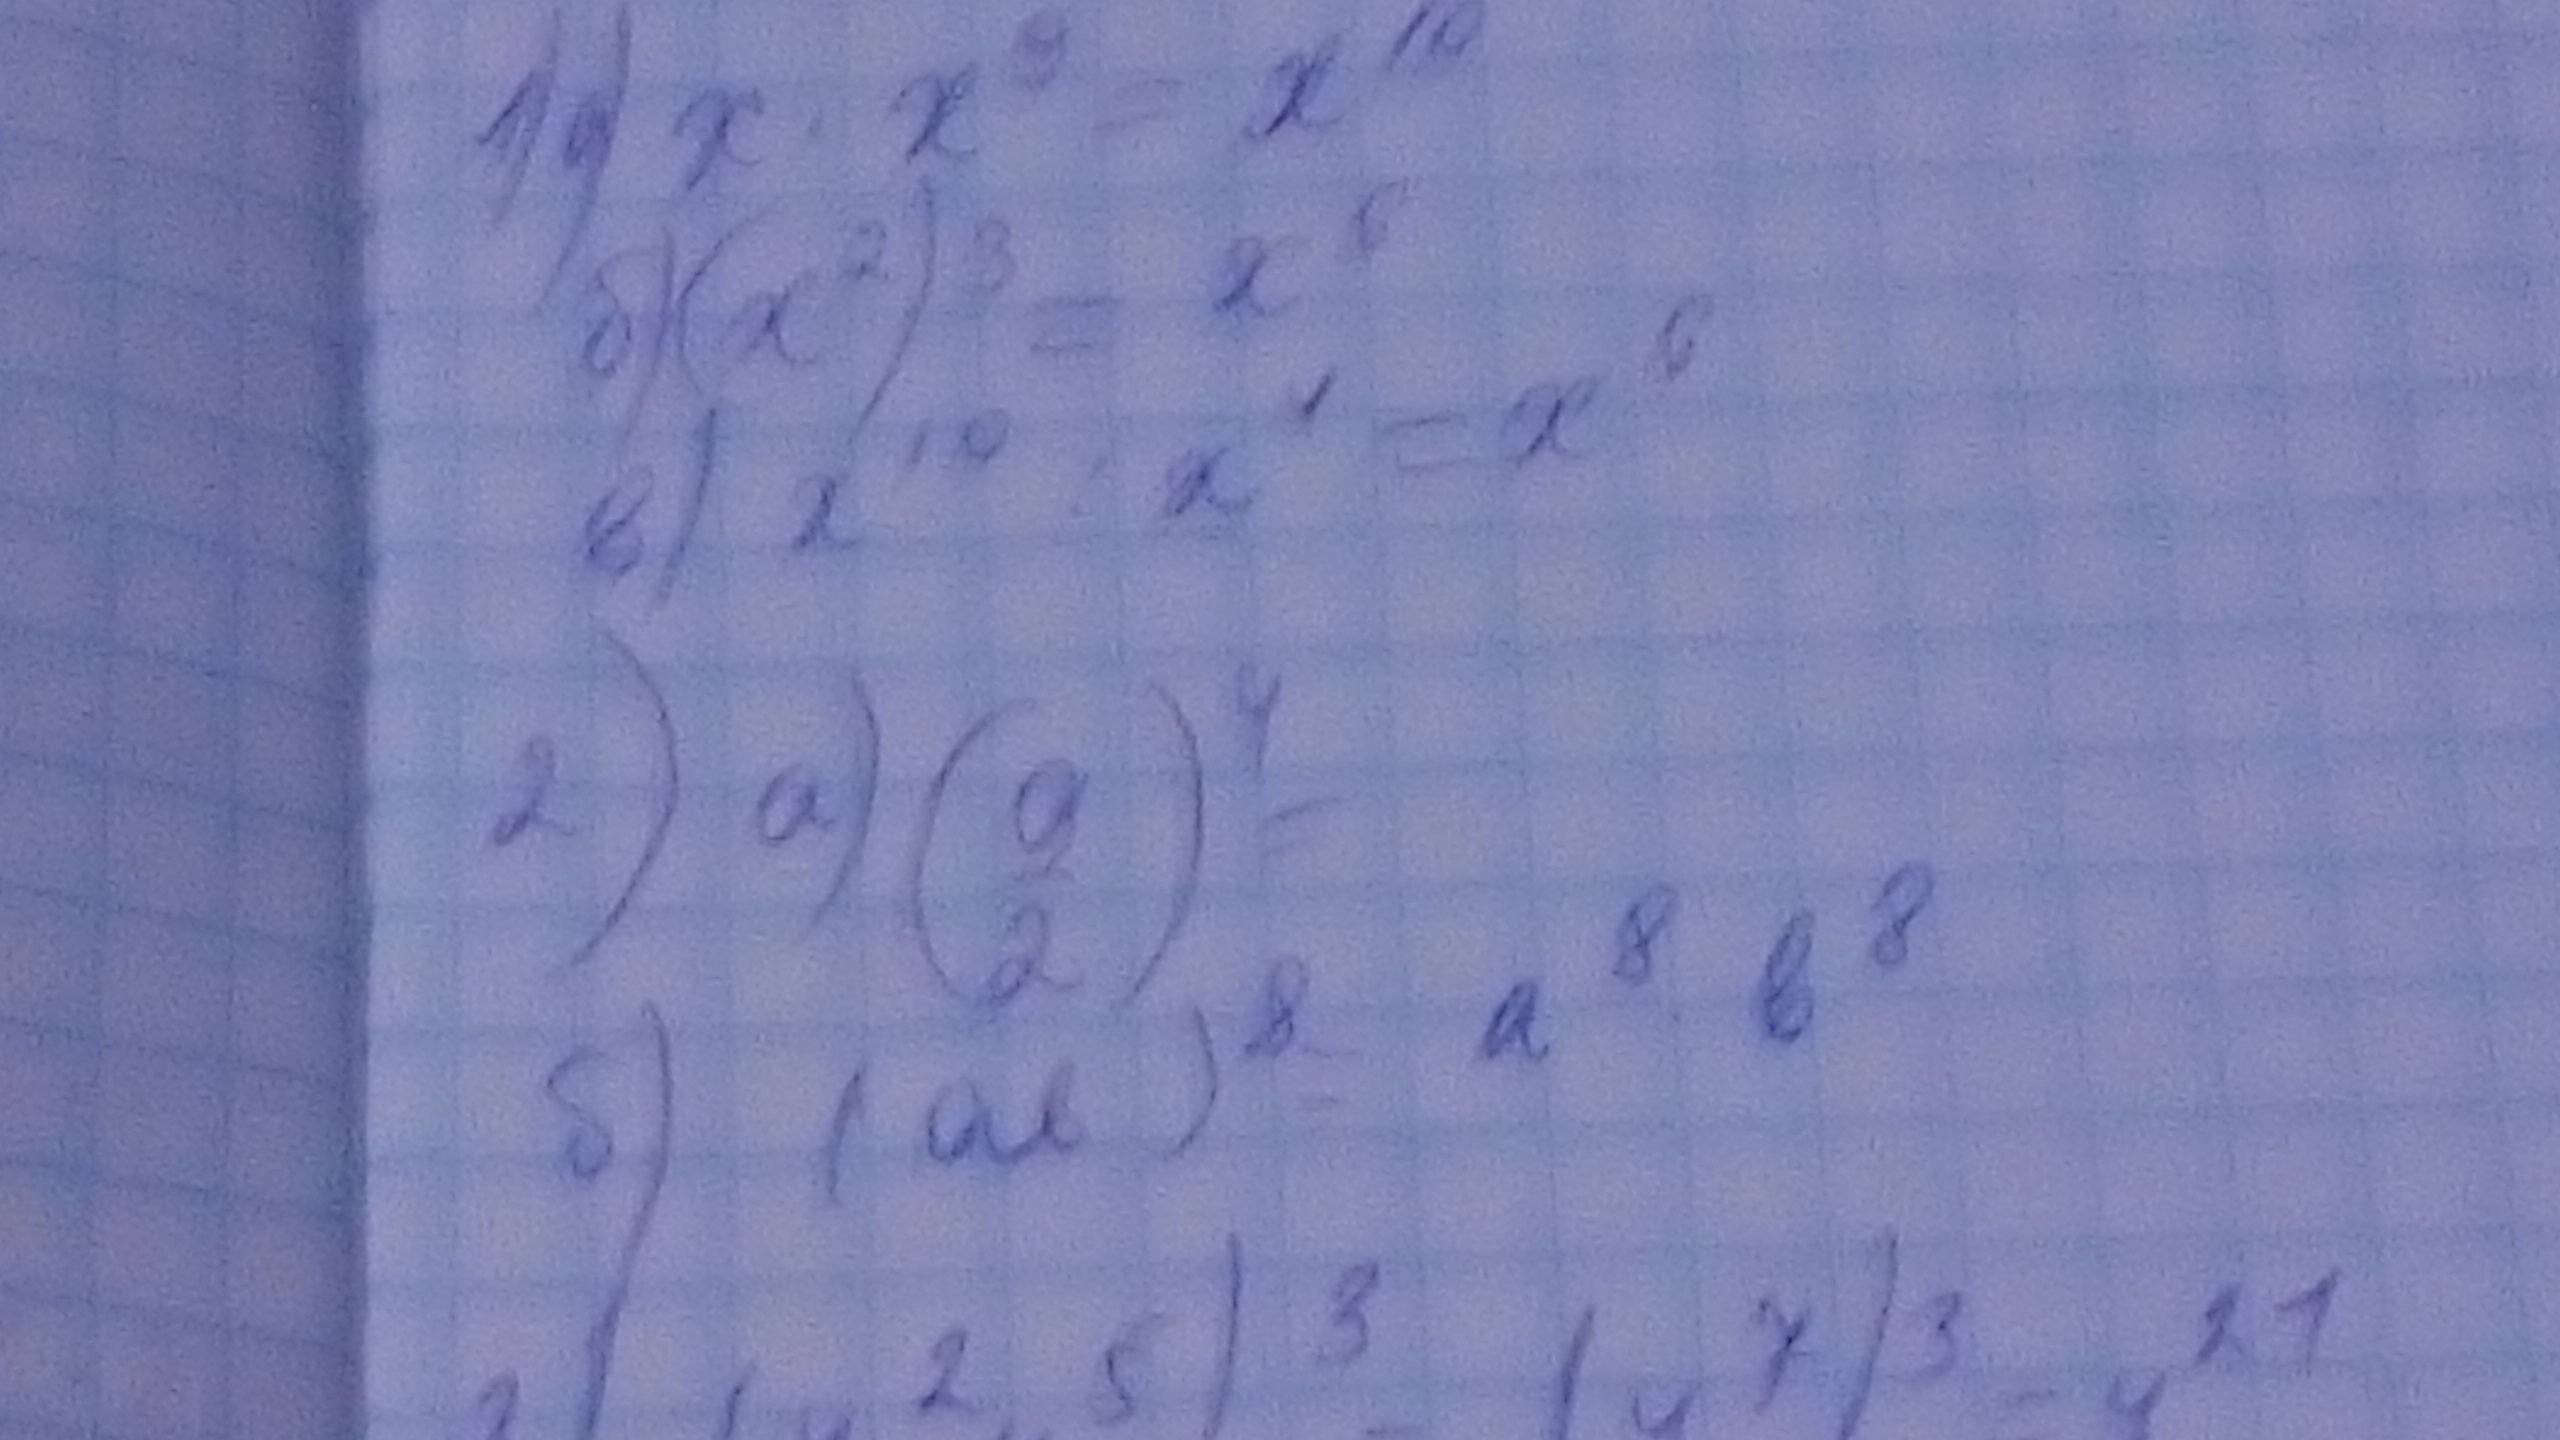 1) а) x · x⁹ = x¹⁰
б) (x²)³ = x⁶
в) x¹⁰ : x⁴ = x⁶
2) а) (a/2)⁴ =
б) (ab)⁸ = a⁸ b⁸
3) (y² · y⁵)³ = (y⁷)³ = y²¹